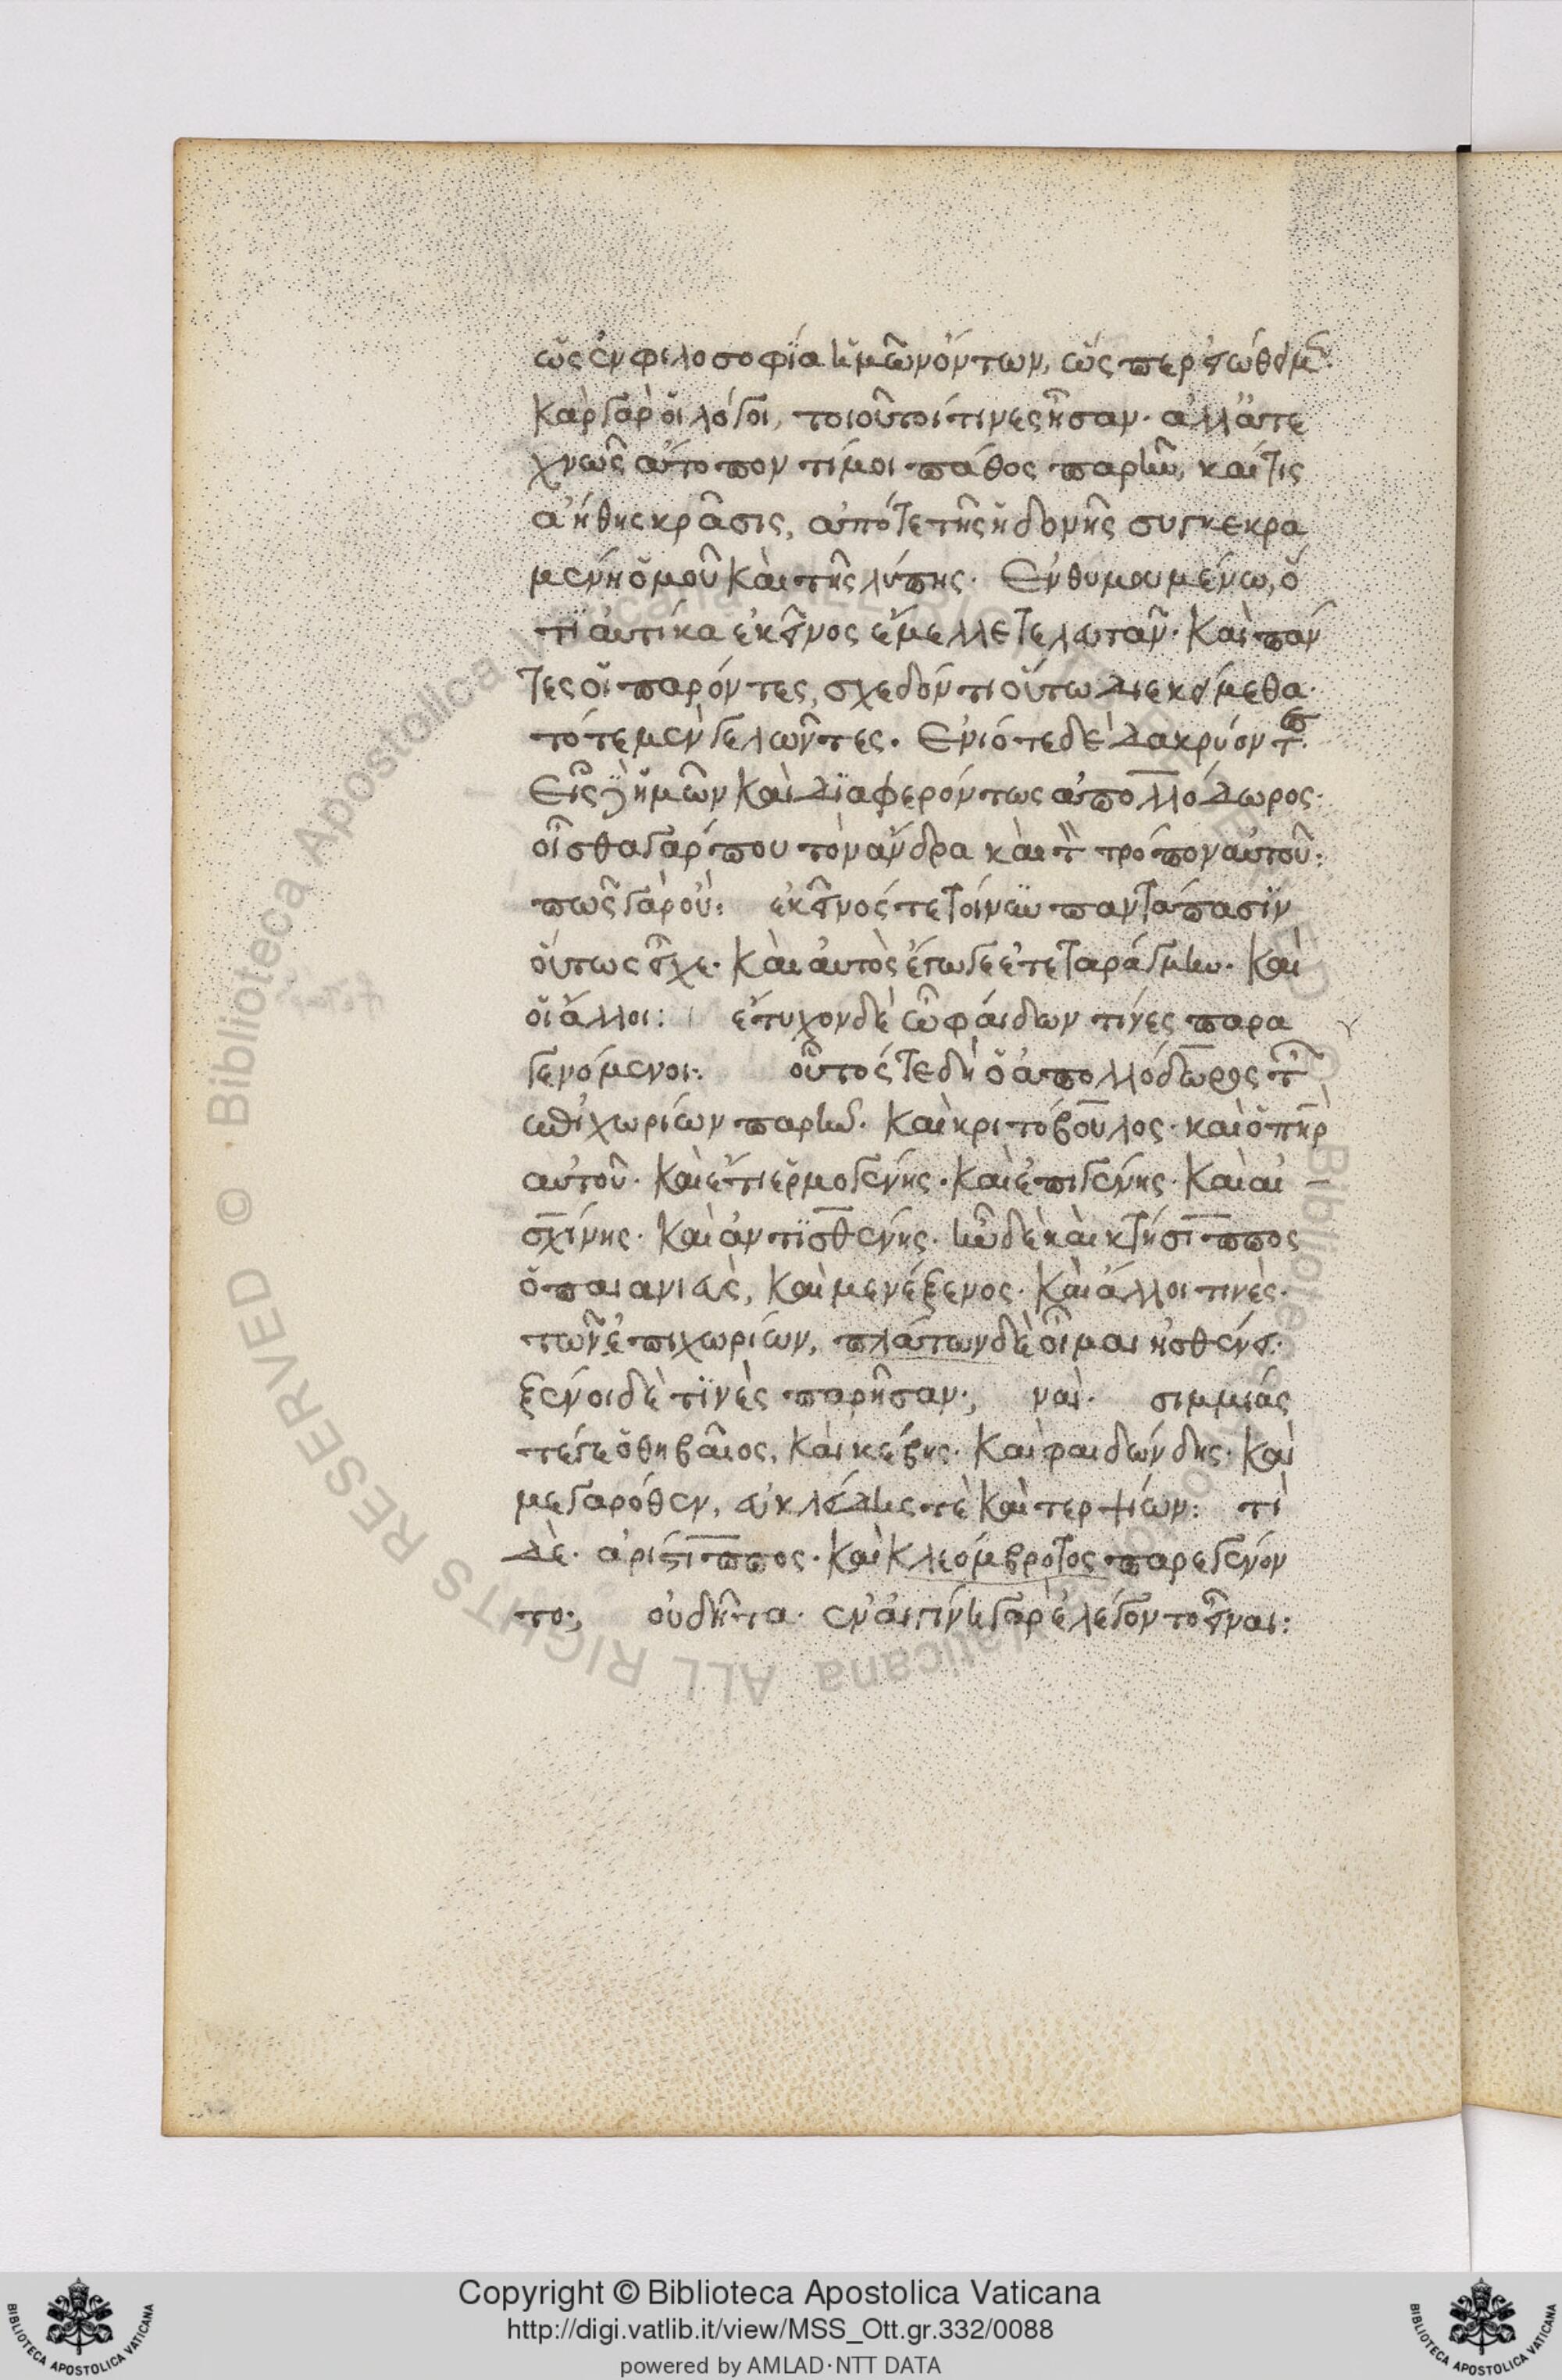 ὡς ἐν φιλοσοφία ἡμῶν ὄντων, ὥς περ εἰώθειμεν·
Καὶ γὰρ οἱ λόγοι, τοιοῦτοί τινες ἦσαν· ἀλλ' ἀτε
χνῶς ἄτοπον τί μοι πάθος παρῆν, καί τις
ἀήθης κρᾶσις, ἀπό τε τῆς ἡδονῆς συγκεκρα
μένη ὁμοῦ καὶ τῆς λύπης· Ἐνθυμουμένω, ὅ
τι αὐτίκα ἐκεῖνος ἔμελλε τελευτᾶν· Καὶ πάν
τες οἱ παρόντες, σχεδόν τι οὕτω διεκείμεθα·
τότε μὲν γελῶντες· Ἐνιότε δὲ δακρύοντες·
Εἷς δὲ ἡμῶν καὶ διαφερόντως ἀπολλόδωρος·
οἶσθα γάρ που τὸν ἄνδρα καὶ τὸν τρόπον αὐτοῦ:
πῶς γὰρ οὔ: ἐκεῖνός τε τοίνυν παντάπασιν
οὕτως εἶχε· Καὶ αὐτὸς ἔγωγε ἐτεταράγμην· Καὶ
οἱ ἄλλοι: ἔτυχον δὲ ὦ φαίδων τίνες παρα
γενόμενοι: οὗτός τε δὴ ὁ ἀπολλόδωρος τῶν
ἐπιχωρίων παρῆν· Καὶ κριτόβουλος· καὶ ὁ πατὴρ
αὐτοῦ· Καὶ ἔτι ἑρμογένης· Καὶ ἐπιγένης· Καὶ αἰ
σχίνης· Καὶ ἀντισθένης· ἦν δὲ καὶ κτήσιππος
ὁ παιανιεὺς, Καὶ μενέξενος· Καὶ ἄλλοι τινὲς·
τῶν ἐπιχωρίων, πλάτων δὲ οἶμαι ἠσθένει·
ξένοι δὲ τινὲς παρῆσαν·; ναὶ· σιμμίας
τέ γε ὁ θηβαῖος, Καὶ κέβης· Καὶ φαιδώνδης· Καὶ
μεγαρόθεν, εὐκλείδης τὲ Καὶ τερψίων: τὶ
δὲ· ἀρίστιππος· Καὶ Κλεόμβροτος παρεγένον
το·; οὐδῆτα· ἐν αἰγίνη γὰρ ἐλέγοντο εἶναι:
Copyright © Biblioteca Apostolica Vaticana
http://digi.vatlib.it/view/MSS_Ott.gr.332/0088
powered by AMLAD·NTT DATA
BIBLIOTECA APOSTOLICA VATICANA
BIBLIOTECA APOSTOLICA VATICANA